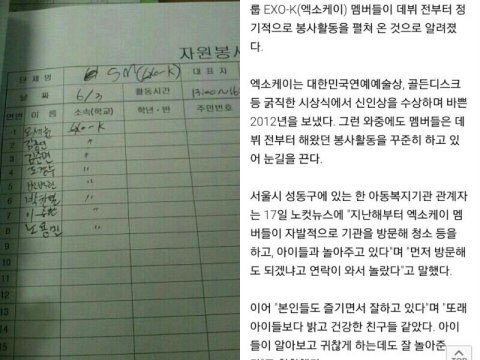 자원봉사
단체명 SM(exo-k) 대표자
날짜 6/3 활동시간 13:00~16
연번 이름 소속(학교) 학년·반 주민번호
1 exo-k
2 김종인 "
3 김준면 "
4 도경수 "
5 변백현 "
6 박찬열 "
7 "
8 "
9
10
11
12
13
14
15
룹 EXO-K(엑소케이) 멤버들이 데뷔 전부터 정
기적으로 봉사활동을 펼쳐 온 것으로 알려졌
다.
엑소케이는 대한민국연예예술상, 골든디스크
등 굵직한 시상식에서 신인상을 수상하며 바쁜
2012년을 보냈다. 그런 와중에도 멤버들은 데
뷔 전부터 해왔던 봉사활동을 꾸준히 하고 있
어 눈길을 끈다.
서울시 성동구에 있는 한 아동복지기관 관계자
는 17일 노컷뉴스에 "지난해부터 엑소케이 멤
버들이 자발적으로 기관을 방문해 청소 등을
하고, 아이들과 놀아주고 있다"며 "먼저 방문해
도 되겠냐고 연락이 와서 놀랐다"고 말했다.
이어 "본인들도 즐기면서 잘하고 있다"며 "또래
아이들보다 밝고 건강한 친구들 같았다. 아이
들이 알아보고 귀찮게 하는데도 잘 놀아준
TOP